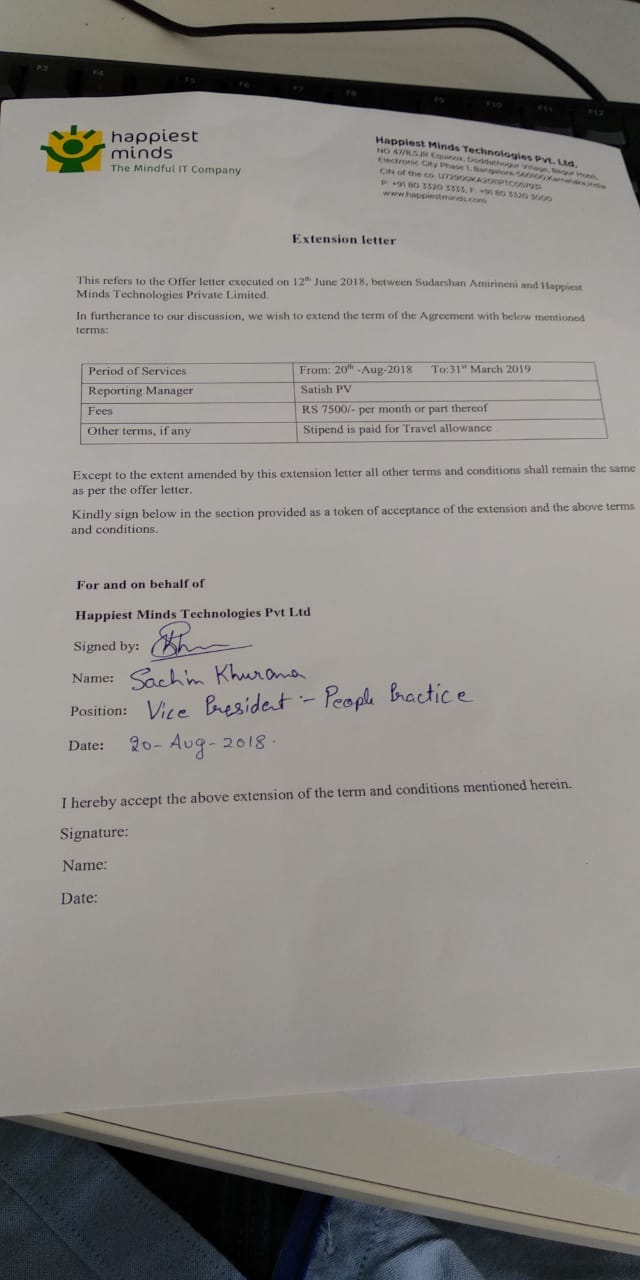 happiest
minds
The Mindful IT Company
Happiest Minds Technologies Pvt. Ltd.
NO 47/8,SJR Equinox, Doddathogur Village, Begur Hobli,
Electronic City Phase 1, Bangalore-560100,Karnataka,India
CIN of the co. U72900KA2011PTC057931
P: +91 80 3320 3333, F: +91 80 3320 3000
www.happiestminds.com
Extension letter
This refers to the Offer letter executed on 12th June 2018, between Sudarshan Amirineni and Happiest
Minds Technologies Private Limited.
In furtherance to our discussion, we wish to extend the term of the Agreement with below mentioned
terms:
Period of Services From: 20th -Aug-2018 To:31st March 2019
Reporting Manager Satish PV
Fees RS 7500/- per month or part thereof
Other terms, if any Stipend is paid for Travel allowance
Except to the extent amended by this extension letter all other terms and conditions shall remain the same
as per the offer letter.
Kindly sign below in the section provided as a token of acceptance of the extension and the above terms
and conditions.
For and on behalf of
Happiest Minds Technologies Pvt Ltd
Signed by:
Name: Sachin Khurana
Position: Vice President :- People Practice
Date: 20-Aug-2018.
I hereby accept the above extension of the term and conditions mentioned herein.
Signature:
Name:
Date: